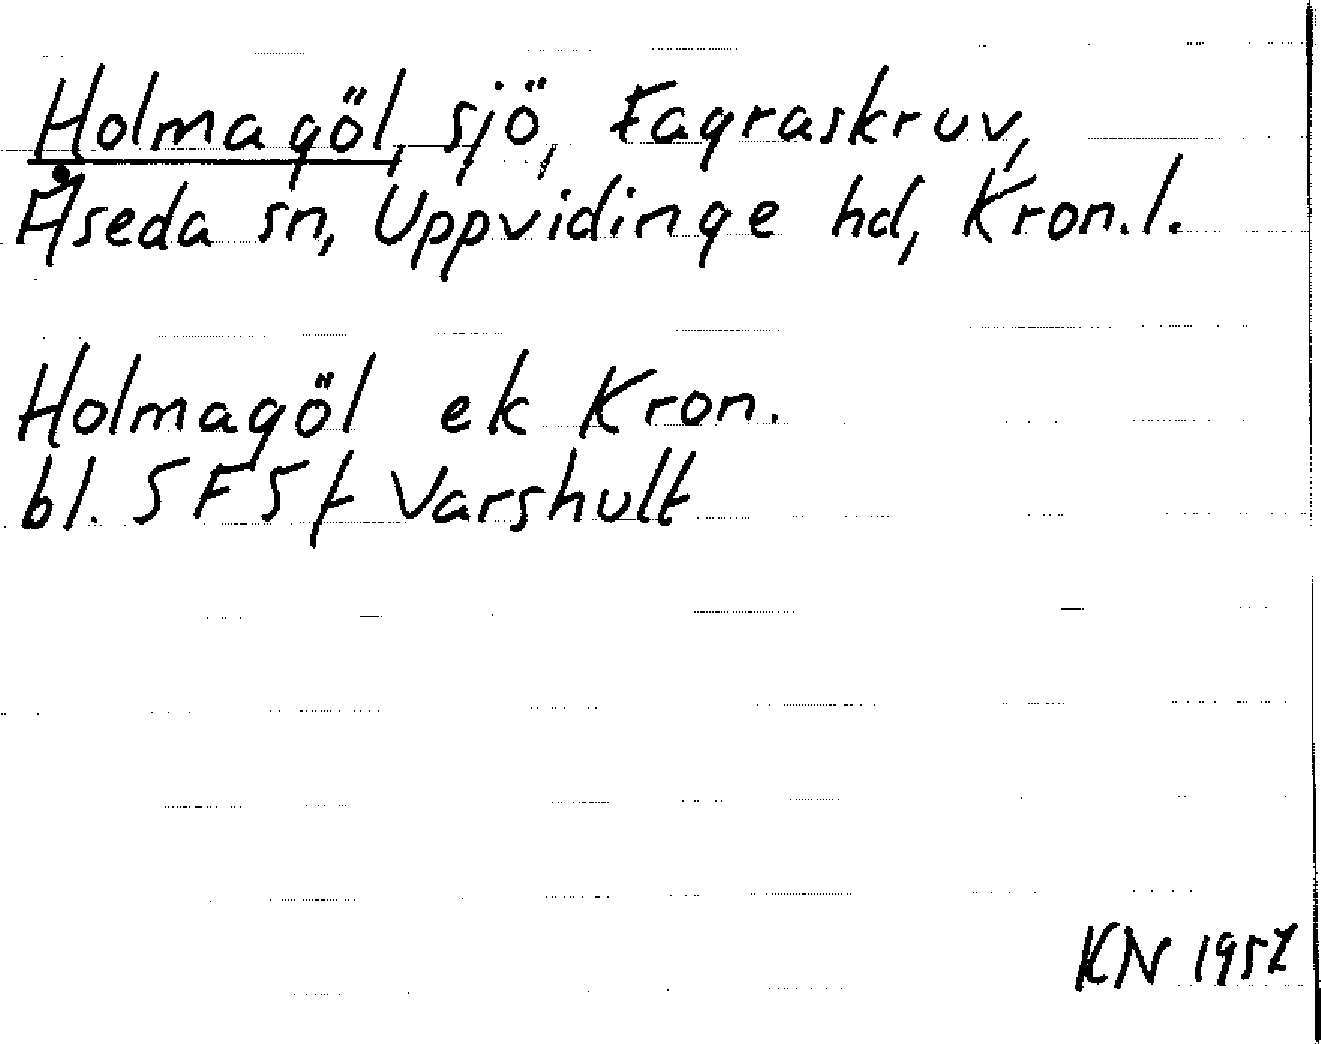 Holmagöl, sjö, Fagraskruv,
Åseda sn, Uppvidinge hd, Kron.l.
Holmagöl ek Kron.
bl. 5F5f Varshult
KN 1957